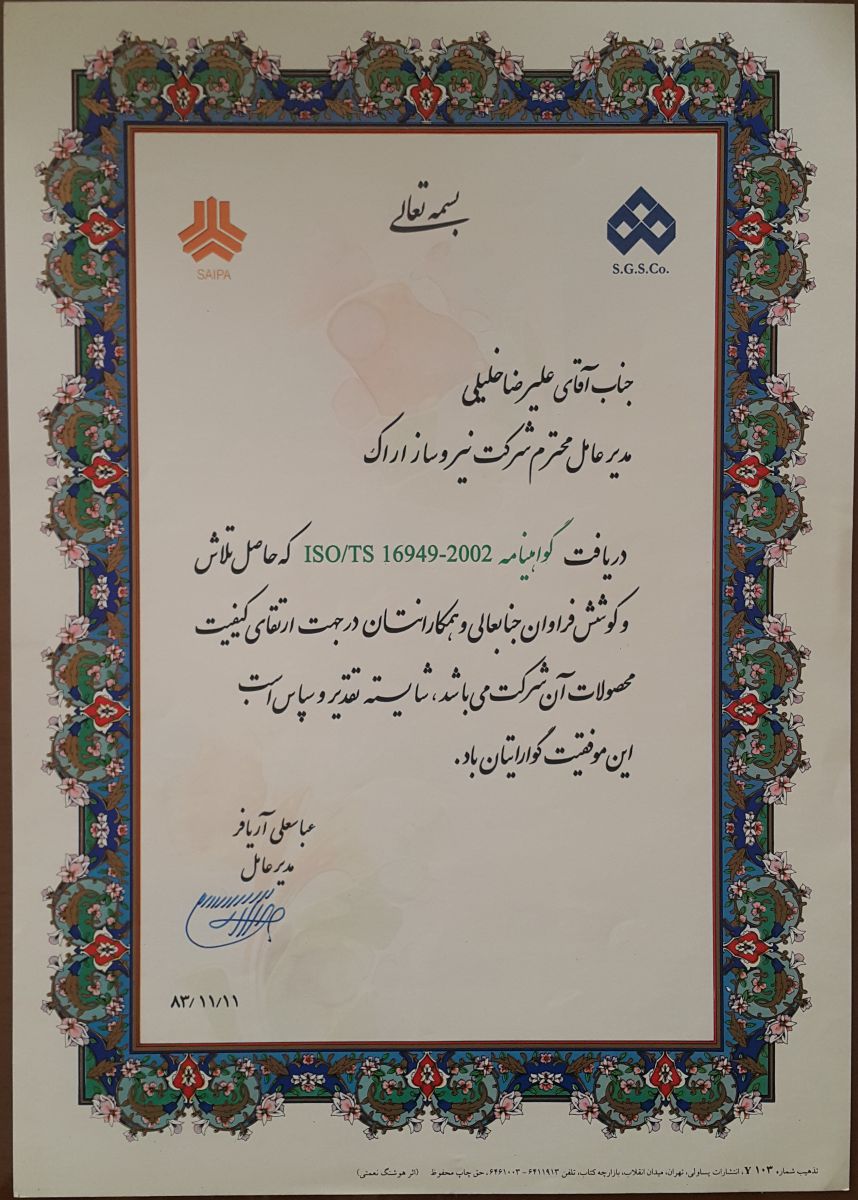 بسمه تعالی
SAIPA
S.G.S.Co.
جناب آقای علیرضا خلیلی
مدیر عامل محترم شرکت نیرو ساز اراک
دریافت گواهینامه ISO/TS 16949-2002 که حاصل تلاش
و کوشش فراوان جنابعالی و همکارانتان در جهت ارتقای کیفیت
محصولات آن شرکت می باشد، شایسته تقدیر و سپاس است
این موفقیت گوارایتان باد.
عباسعلی آریافر
مدیر عامل
۸۳/۱۱/۱۱
تذهیب شماره ۱۰۳ Y، انتشارات یساولی، تهران، میدان انقلاب، بازارچه کتاب، تلفن ۶۴۱۱۹۱۳ - ۶۴۶۱۰۰۳، حق چاپ محفوظ (اثر هوشنگ نعمتی)